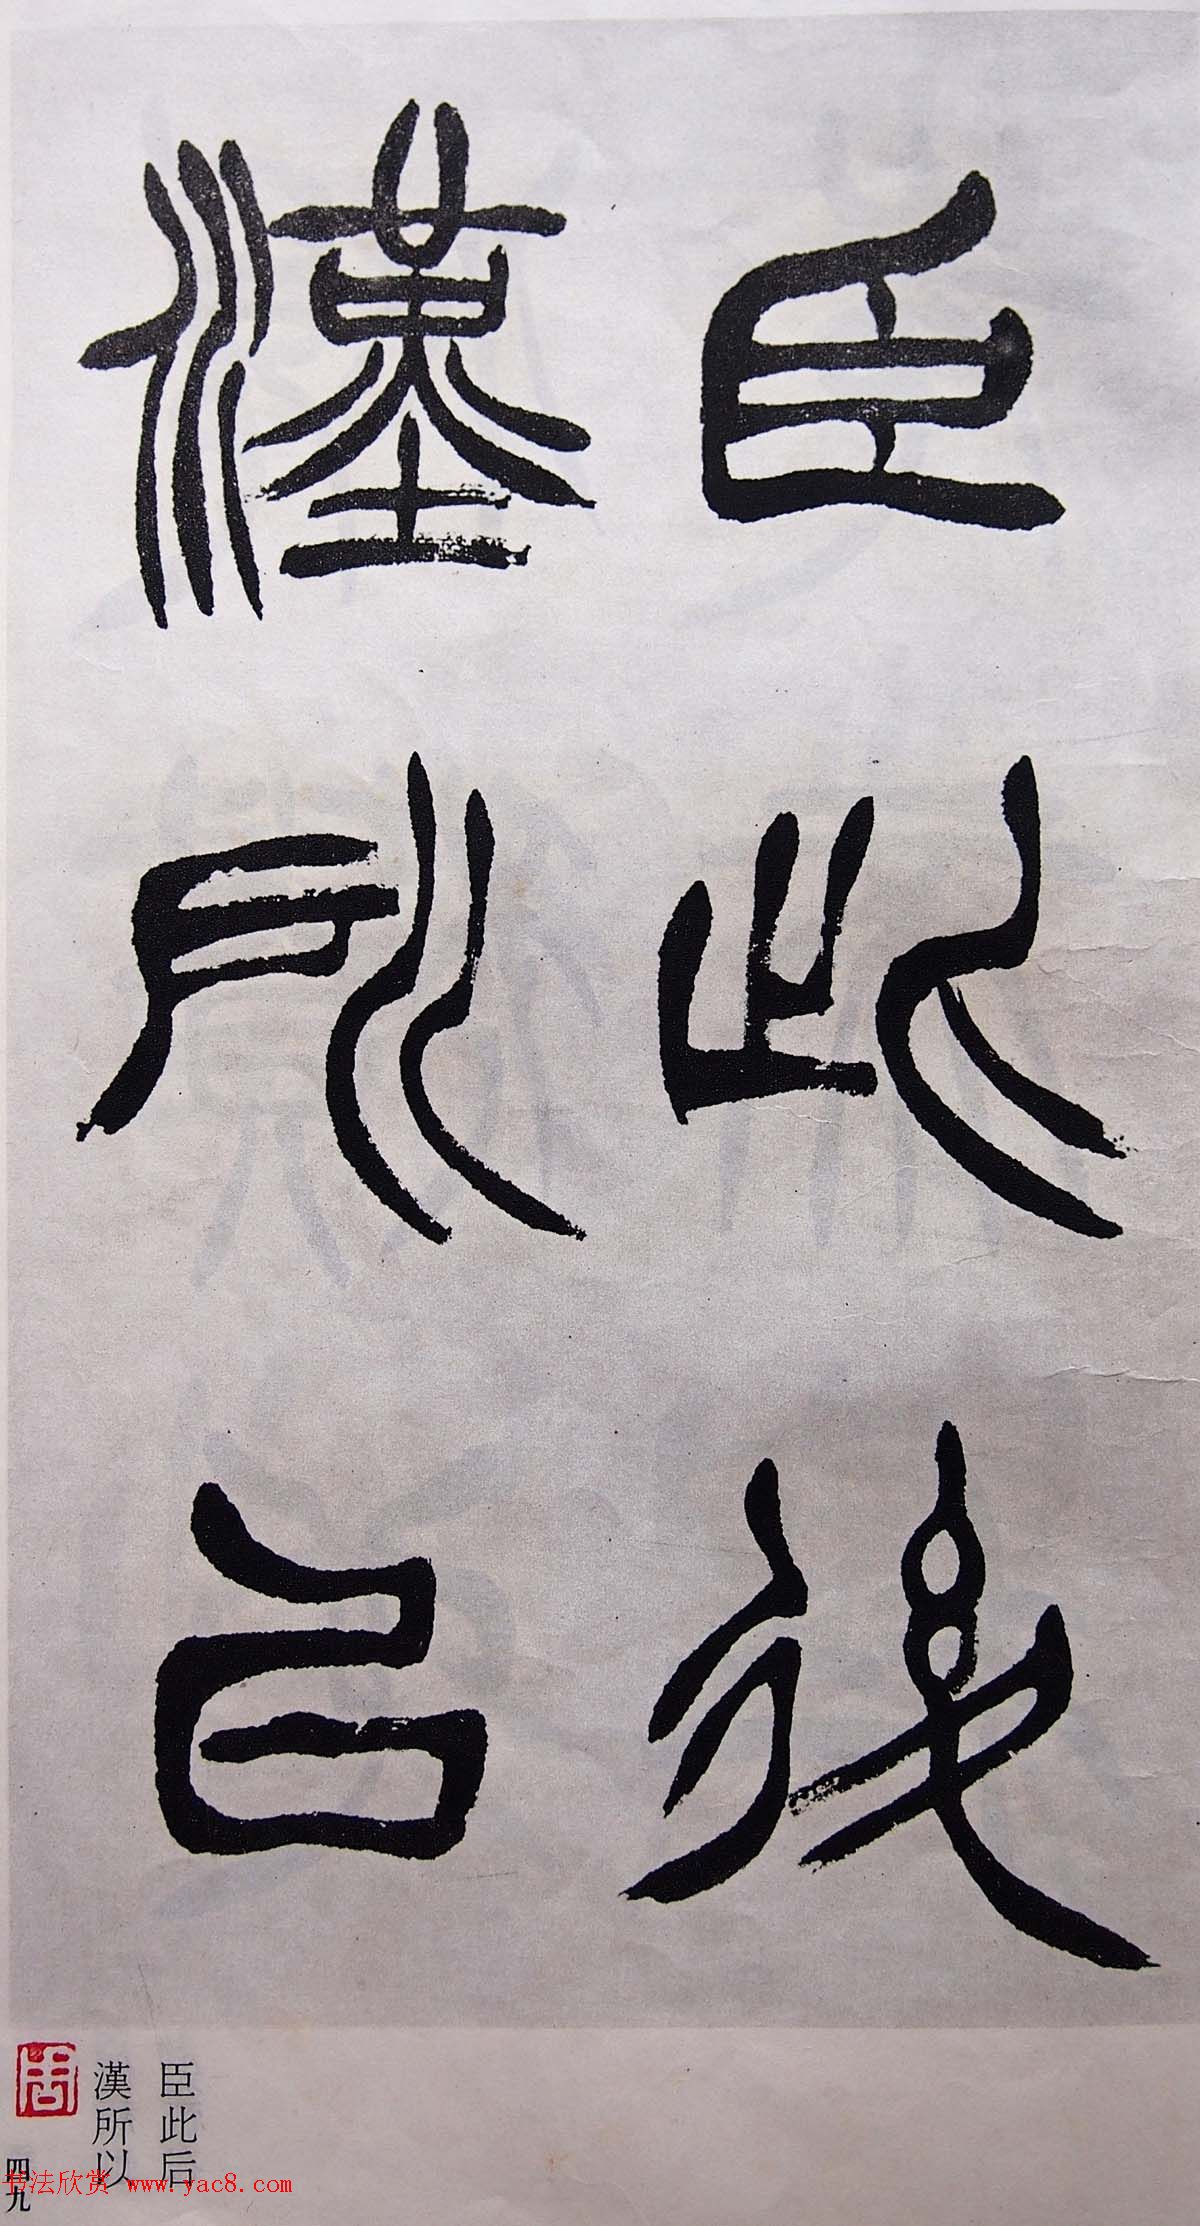 臣此後
漢所㠯
臣此后
漢所以
四九
书法欣赏 www.yac8.com